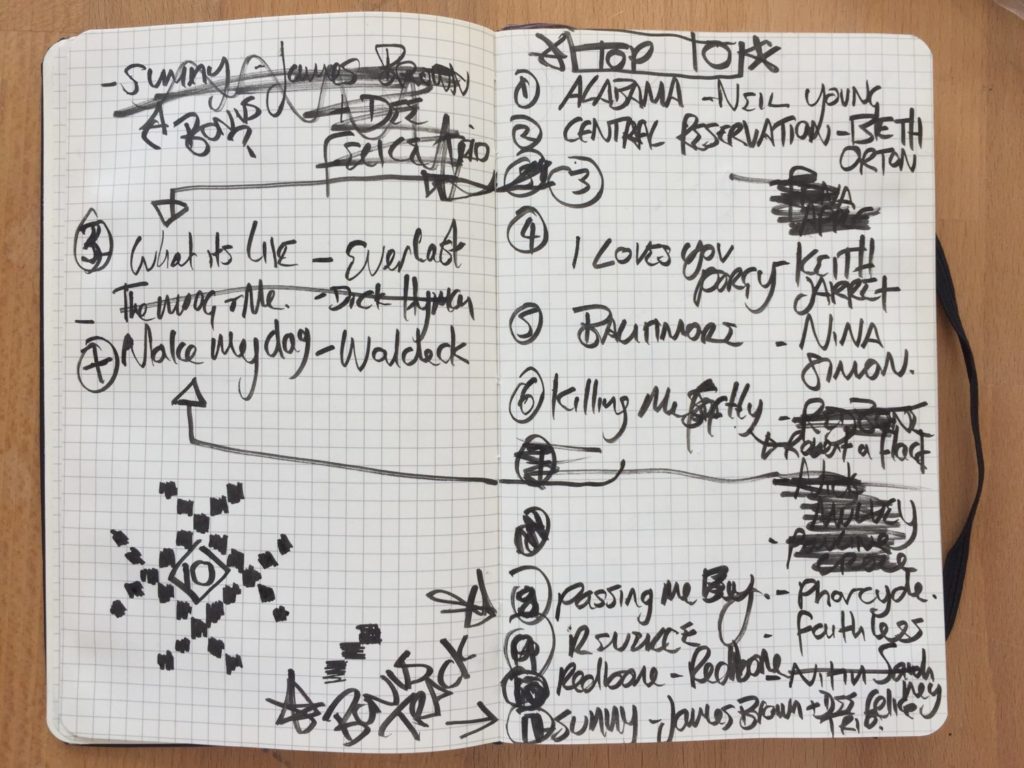 - Sunny - James Brown
BONUS? + DEE
Felice Trio
③ What its LIKE - Everlast
- The moog + Me. - Dick Hyman
Make My day - Waldeck
10
BONUS
TRACK
TOP 10
① ALABAMA - NEIL YOUNG
② CENTRAL RESERVATION - BETH
ORTON
③
④ I LOVES YOU
PORGY - KEITH
JARRET
⑤ BALITIMORE - NINA
SIMON.
⑥ Killing Me Softly -
Robert a flack
7
NICK
MULVEY
-
8 Passing Me Bey. - Pharcyde.
9 - Faithless
10 Redbone - Redbone - Nitin Sawhney
11 Sunny - James Brown + DEE Felice
TRIO.